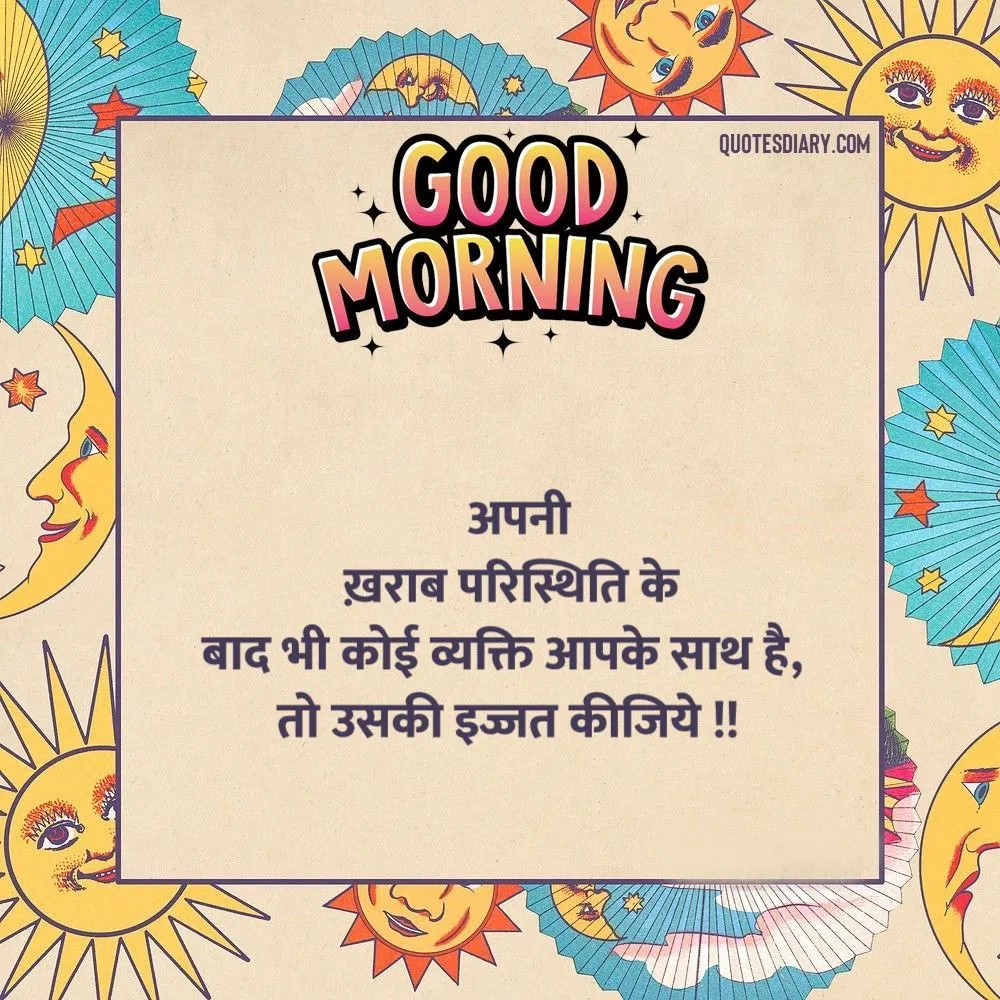 QUOTESDIARY.COM
GOOD
MORNING
अपनी
ख़राब परिस्थिति के
बाद भी कोई व्यक्ति आपके साथ है,
तो उसकी इज्जत कीजिये !!